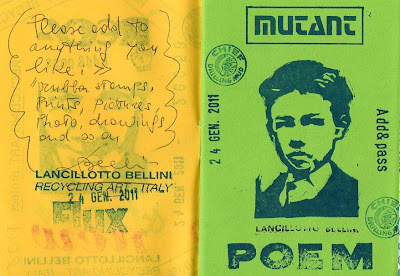 Please add to
anything you
like: >>
rubber stamps,
prints, pictures,
photo, drawings
and so on
LANCILLOTTO BELLINI
RECYCLING ART - ITALY
24 GEN. 2011
Flux
LANCILLOTTO BELLINI
MUTANT
CHIEF
DRILLING MUD
24 GEN. 2011
Add & pass
LANCILLOTTO BELLINI
CHIEF
POEM